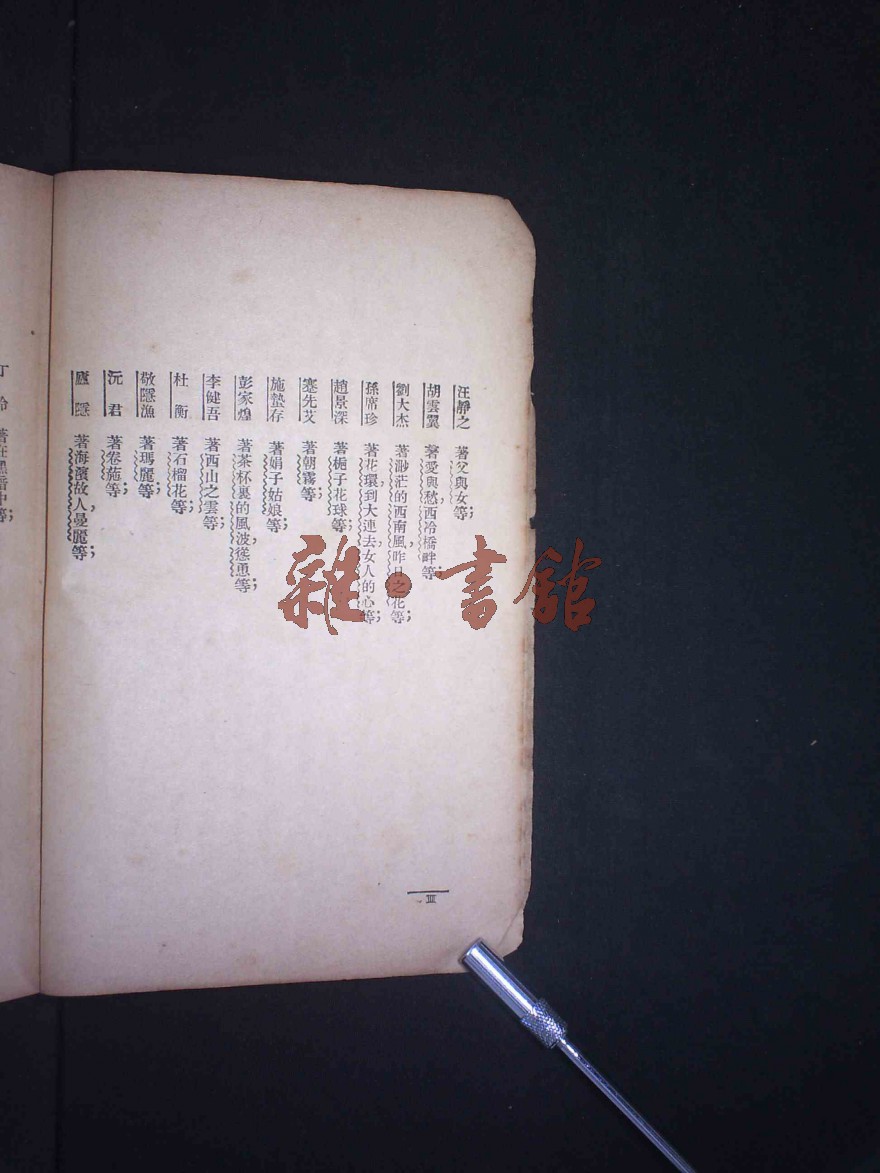 汪靜之　著父與女等;
胡雲翼　著愛與愁,西冷橋畔等;
劉大杰　著渺茫的西南風,昨日之花等;
孫席珍　著花環,到大連去,女人的心等;
趙景深　著梔子花球等;
蹇先艾　著朝霧等;
施蟄存　著娟子姑娘等;
彭家煌　著茶杯裏的風波,慫恿等;
李健吾　著西山之雲等;
杜　衡　著石榴花等;
敬隱漁　著瑪麗等;
沅　君　著卷葹等;
廬　隱　著海濱故人,曼麗等;
丁　玲　著在黑暗中等;
III
雜·書館